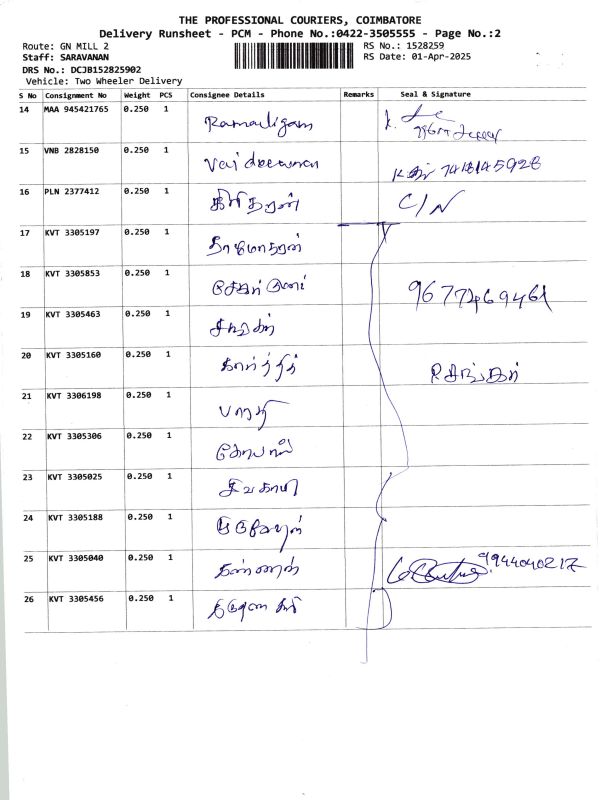 THE PROFESSIONAL COURIERS, COIMBATORE
Delivery Runsheet - PCM - Phone No.:0422-3505555 - Page No.:2
Route: GN MILL 2 RS No.: 1528259
Staff: SARAVANAN RS Date: 01-Apr-2025
DRS No.: DCJB152825902
Vehicle: Two Wheeler Delivery
S No Consignment No Weight PCS Consignee Details Remarks Seal & Signature
14 MAA 945421765 0.250 1 Ramaligam
15 VNB 2828150 0.250 1
16 PLN 2377412 0.250 1 C/N
17 KVT 3305197 0.250 1 தாமோதரன்
18 KVT 3305853 0.250 1 9677469461
19 KVT 3305463 0.250 1
20 KVT 3305160 0.250 1 கார்த்திக்
21 KVT 3306198 0.250 1 பாரதி
22 KVT 3305306 0.250 1 கோபால்
23 KVT 3305025 0.250 1 சிவகாமி
24 KVT 3305188 0.250 1
25 KVT 3305040 0.250 1 9944040217
26 KVT 3305456 0.250 1